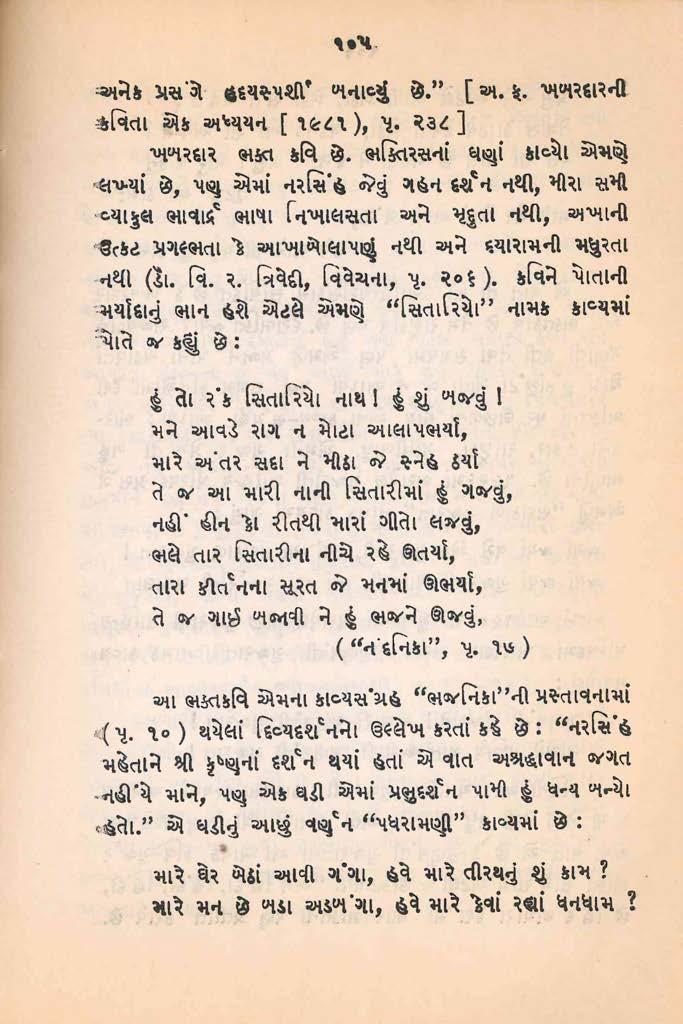 ૧૦૫
અનેક પ્રસંગે હૃદયસ્પર્શી બનાવ્યું છે.” [ અ. ફ. ખબરદારની
કવિતા એક અધ્યયન [ ૧૯૮૧ ), પૃ. ૨૩૮ ]
ખબરદાર ભક્ત કવિ છે. ભક્તિરસનાં ઘણાં કાવ્યો એમણે
લખ્યાં છે, પણ એમાં નરસિંહ જેવું ગહન દર્શન નથી, મીરા સમી
વ્યાકુલ ભાવાર્દ્ર ભાષા નિખાલસતા અને મૃદુતા નથી, અખાની
ઉત્કટ પ્રગલ્ભતા કે આખાબોલાપણું નથી અને દયારામની મધુરતા
નથી (ડૉ. વિ. ર. ત્રિવેદી, વિવેચના, પૃ. ૨૦૬ ). કવિને પોતાની
મર્યાદાનું ભાન હશે એટલે એમણે “સિતારિયો” નામક કાવ્યમાં
પોતે જ કહ્યું છે :
હું તો રંક સિતારિયો નાથ ! હું શું બજવું !
મને આવડે રાગ ન મોટા આલાપભર્યા,
મારે અંતર સદા ને મીઠા જે સ્નેહ ઠર્યા
તે જ આ મારી નાની સિતારીમાં હું ગજવું,
નહીં હીન કો રીતથી મારાં ગીતો લજવું,
ભલે તાર સિતારીના નીચે રહે ઊતર્યા,
તારા કીર્તનના સૂરત જે મનમાં ઊભર્યા,
તે જ ગાઈ બજાવી ને હું ભજને ઊજવું,
( “નંદનિકા”, પૃ. ૧૫ )
આ ભક્તકવિ એમના કાવ્યસંગ્રહ “ભજનિકા”ની પ્રસ્તાવનામાં
( પૃ. ૧૦ ) થયેલાં દિવ્યદર્શનનો ઉલ્લેખ કરતાં કહે છે : “નરસિંહ
મહેતાને શ્રી કૃષ્ણનાં દર્શન થયાં હતાં એ વાત અશ્રદ્ધાવાન જગત
નહીંયે માને, પણ એક ઘડી એમાં પ્રભુદર્શન પામી હું ધન્ય બન્યો
હતો.” એ ઘડીનું આછું વર્ણન “પધરામણી” કાવ્યમાં છે :
મારે ઘેર બેઠાં આવી ગંગા, હવે મારે તીરથનું શું કામ ?
મારે મન છે બડા અડબંગા, હવે મારે કેવાં રહ્યાં ધનધામ ?